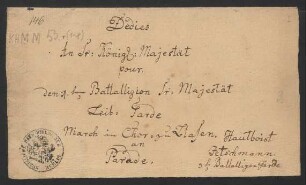 146
Dedies
An Sr: Königl: Majestät
pour
den 2. Battalligion Sr. Majestät
Leib: Garde
March im Chor, zu Blasen. Hautboist
an
Parade. Peterhmann.
Battalligon Garde